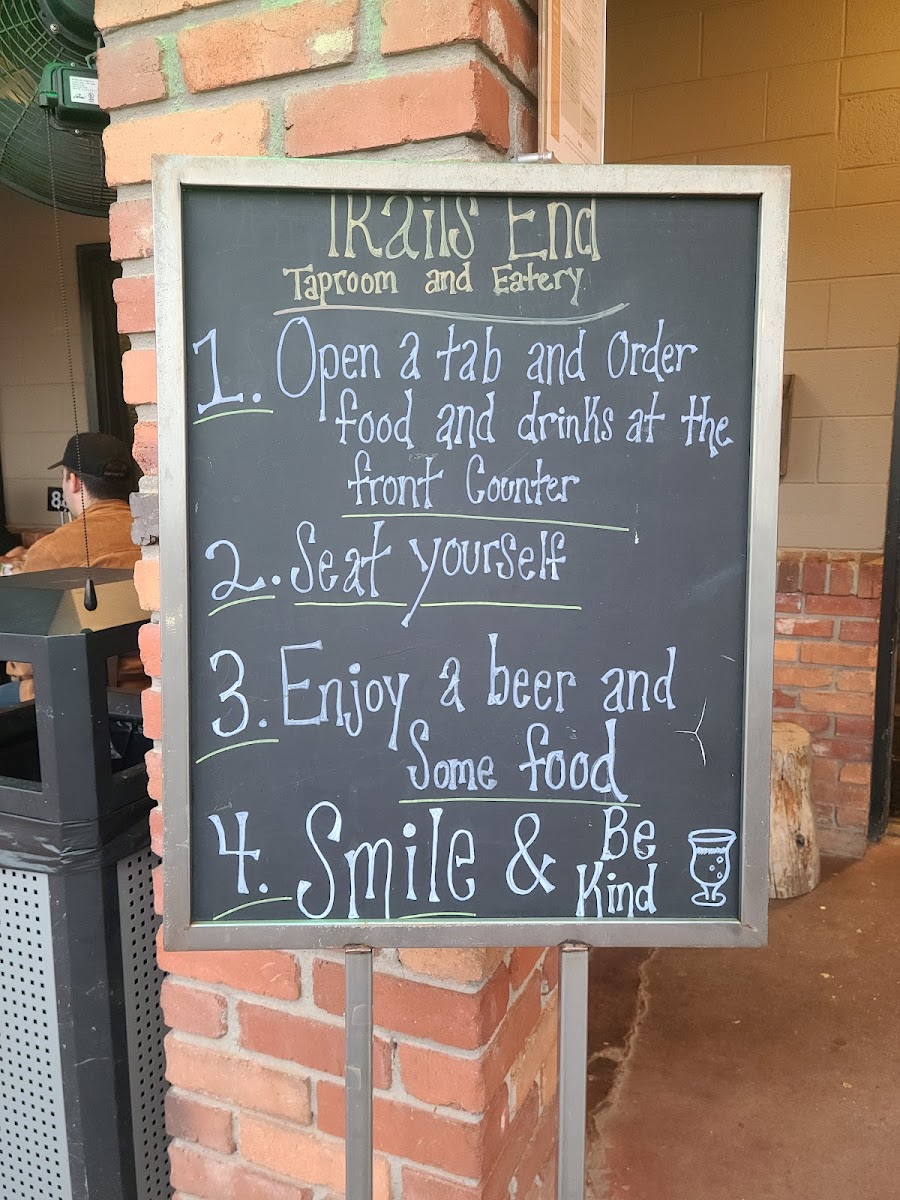 TRails End
Taproom and Eatery
1. Open a tab and Order
food and drinks at the
front Counter
2. Seat yourself
3. Enjoy a beer and
Some food
4. Smile & Be
Kind